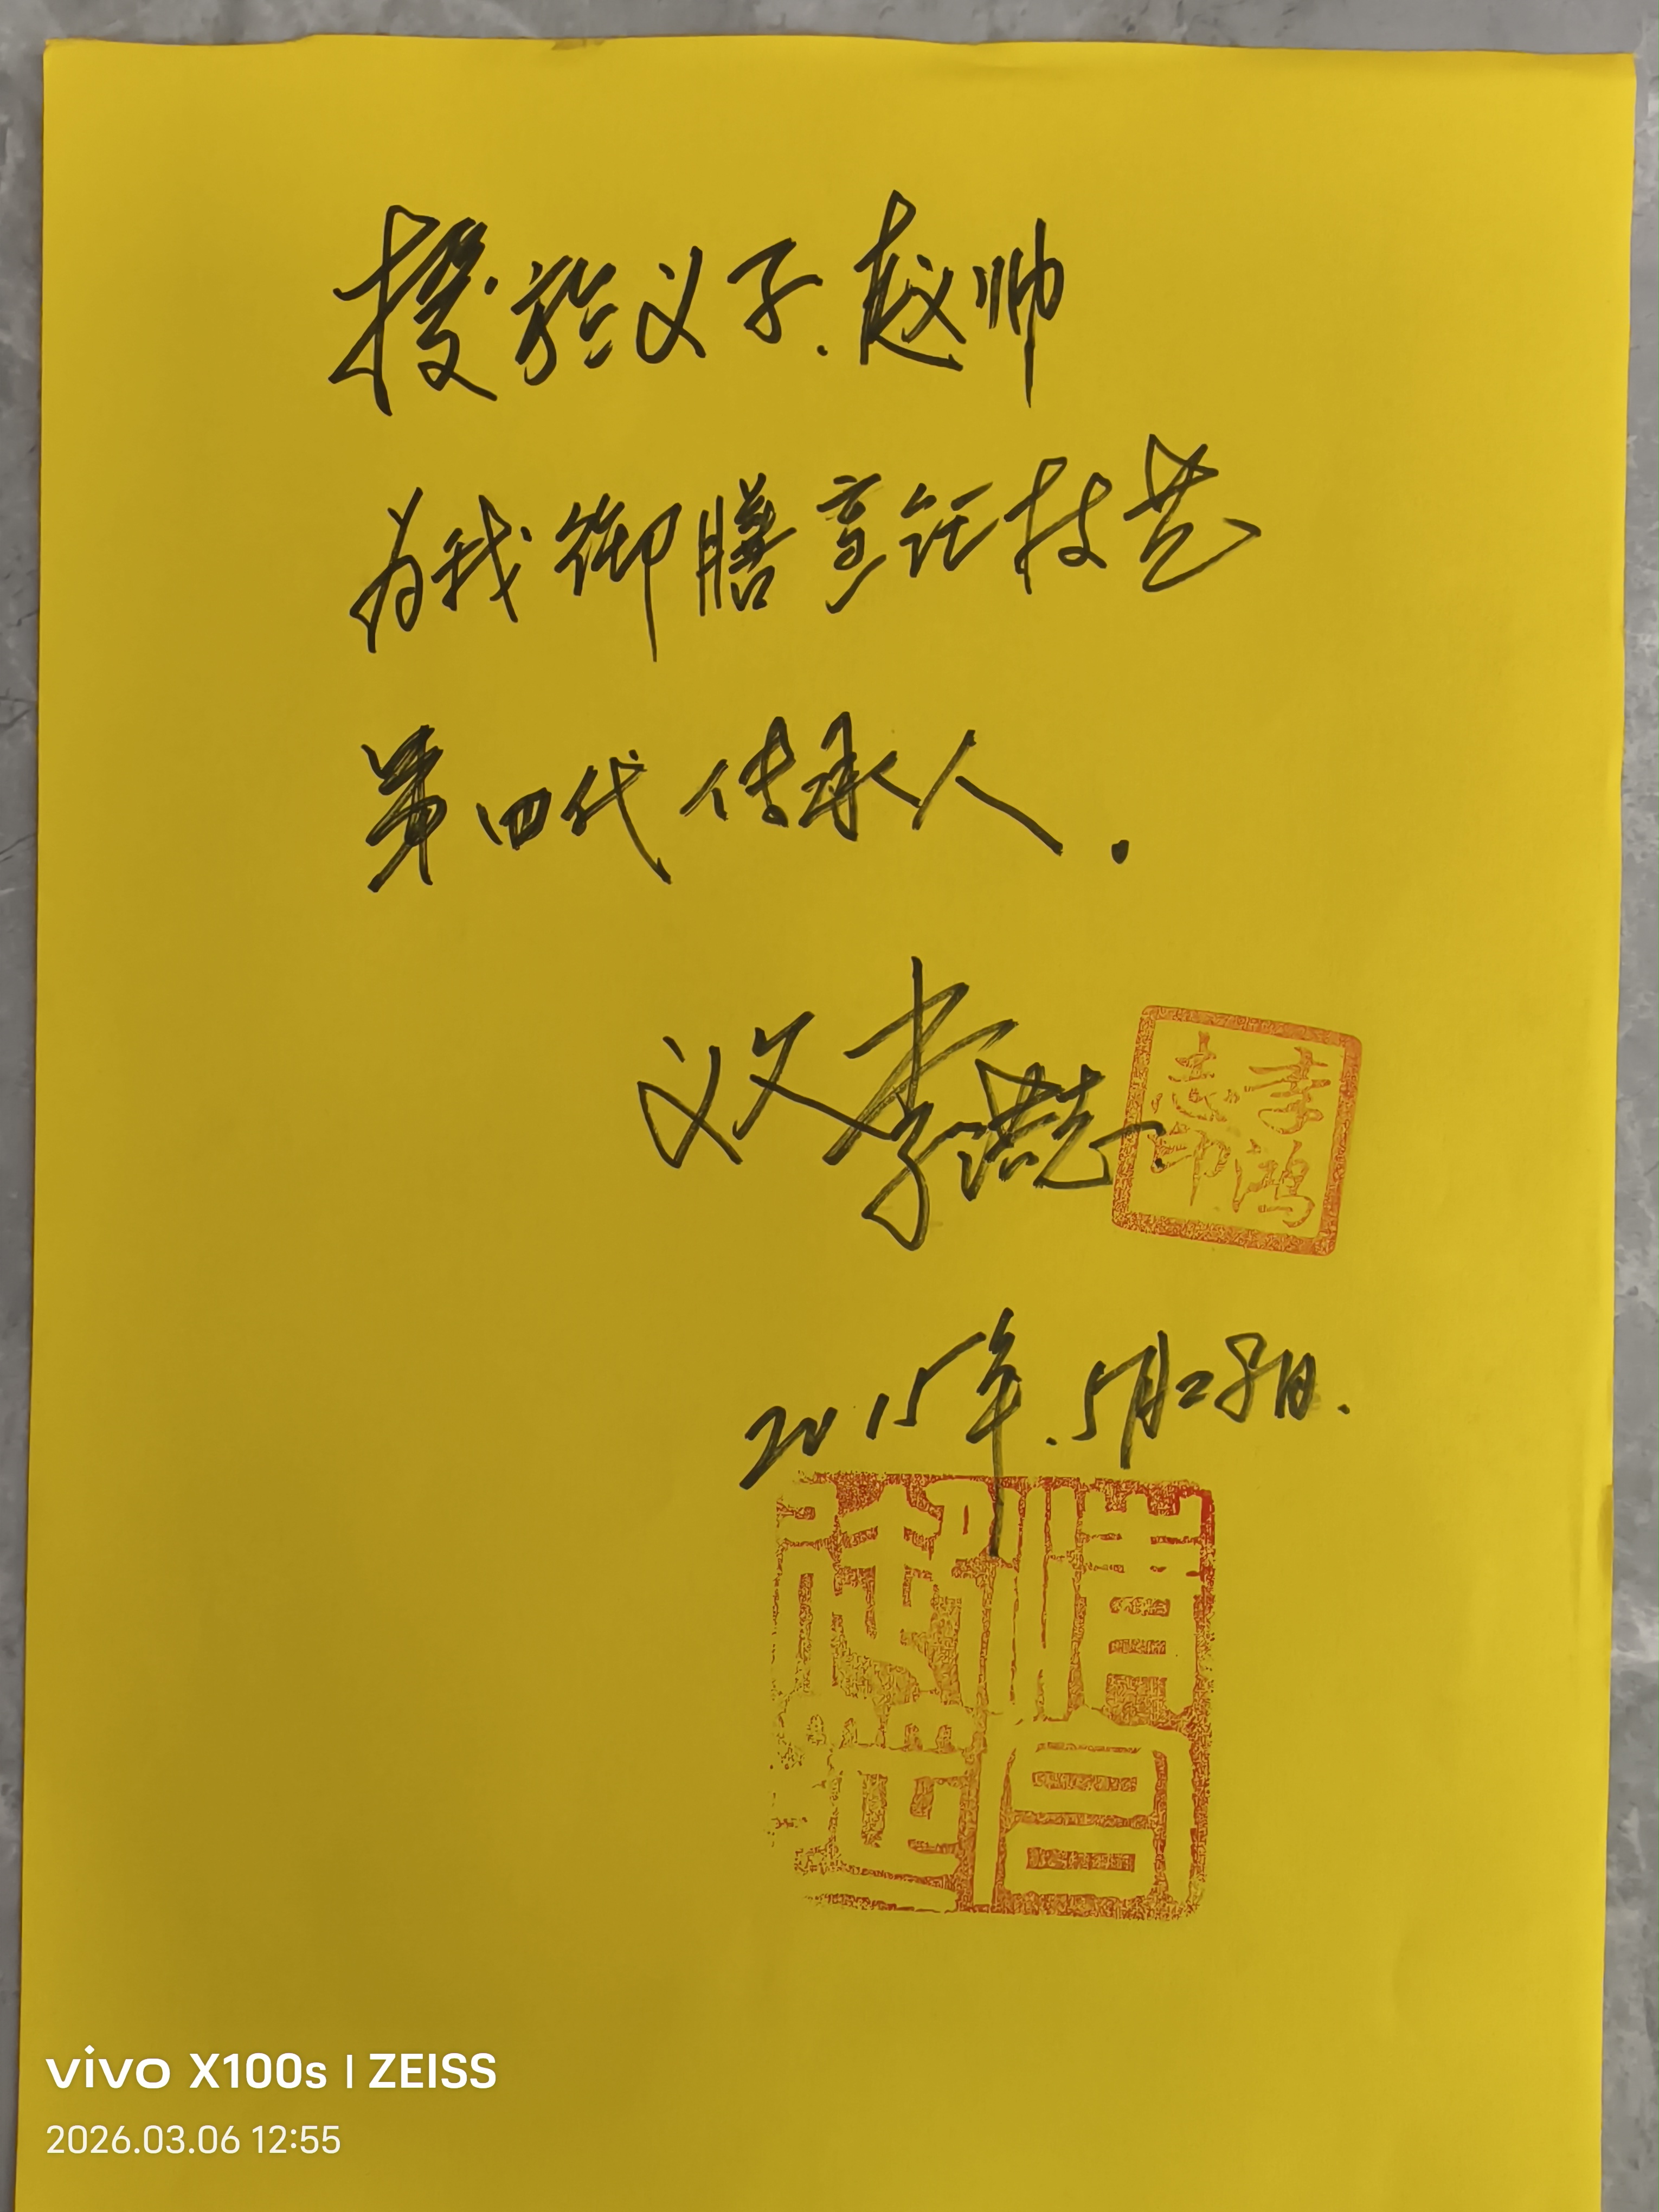 授於义子.赵帅
为我御膳烹饪技艺
第四代传承人.
义父李鸿志
李鸿志印
2015年.5月28日.
清宫御膳
vivo X100s | ZEISS
2026.03.06 12:55